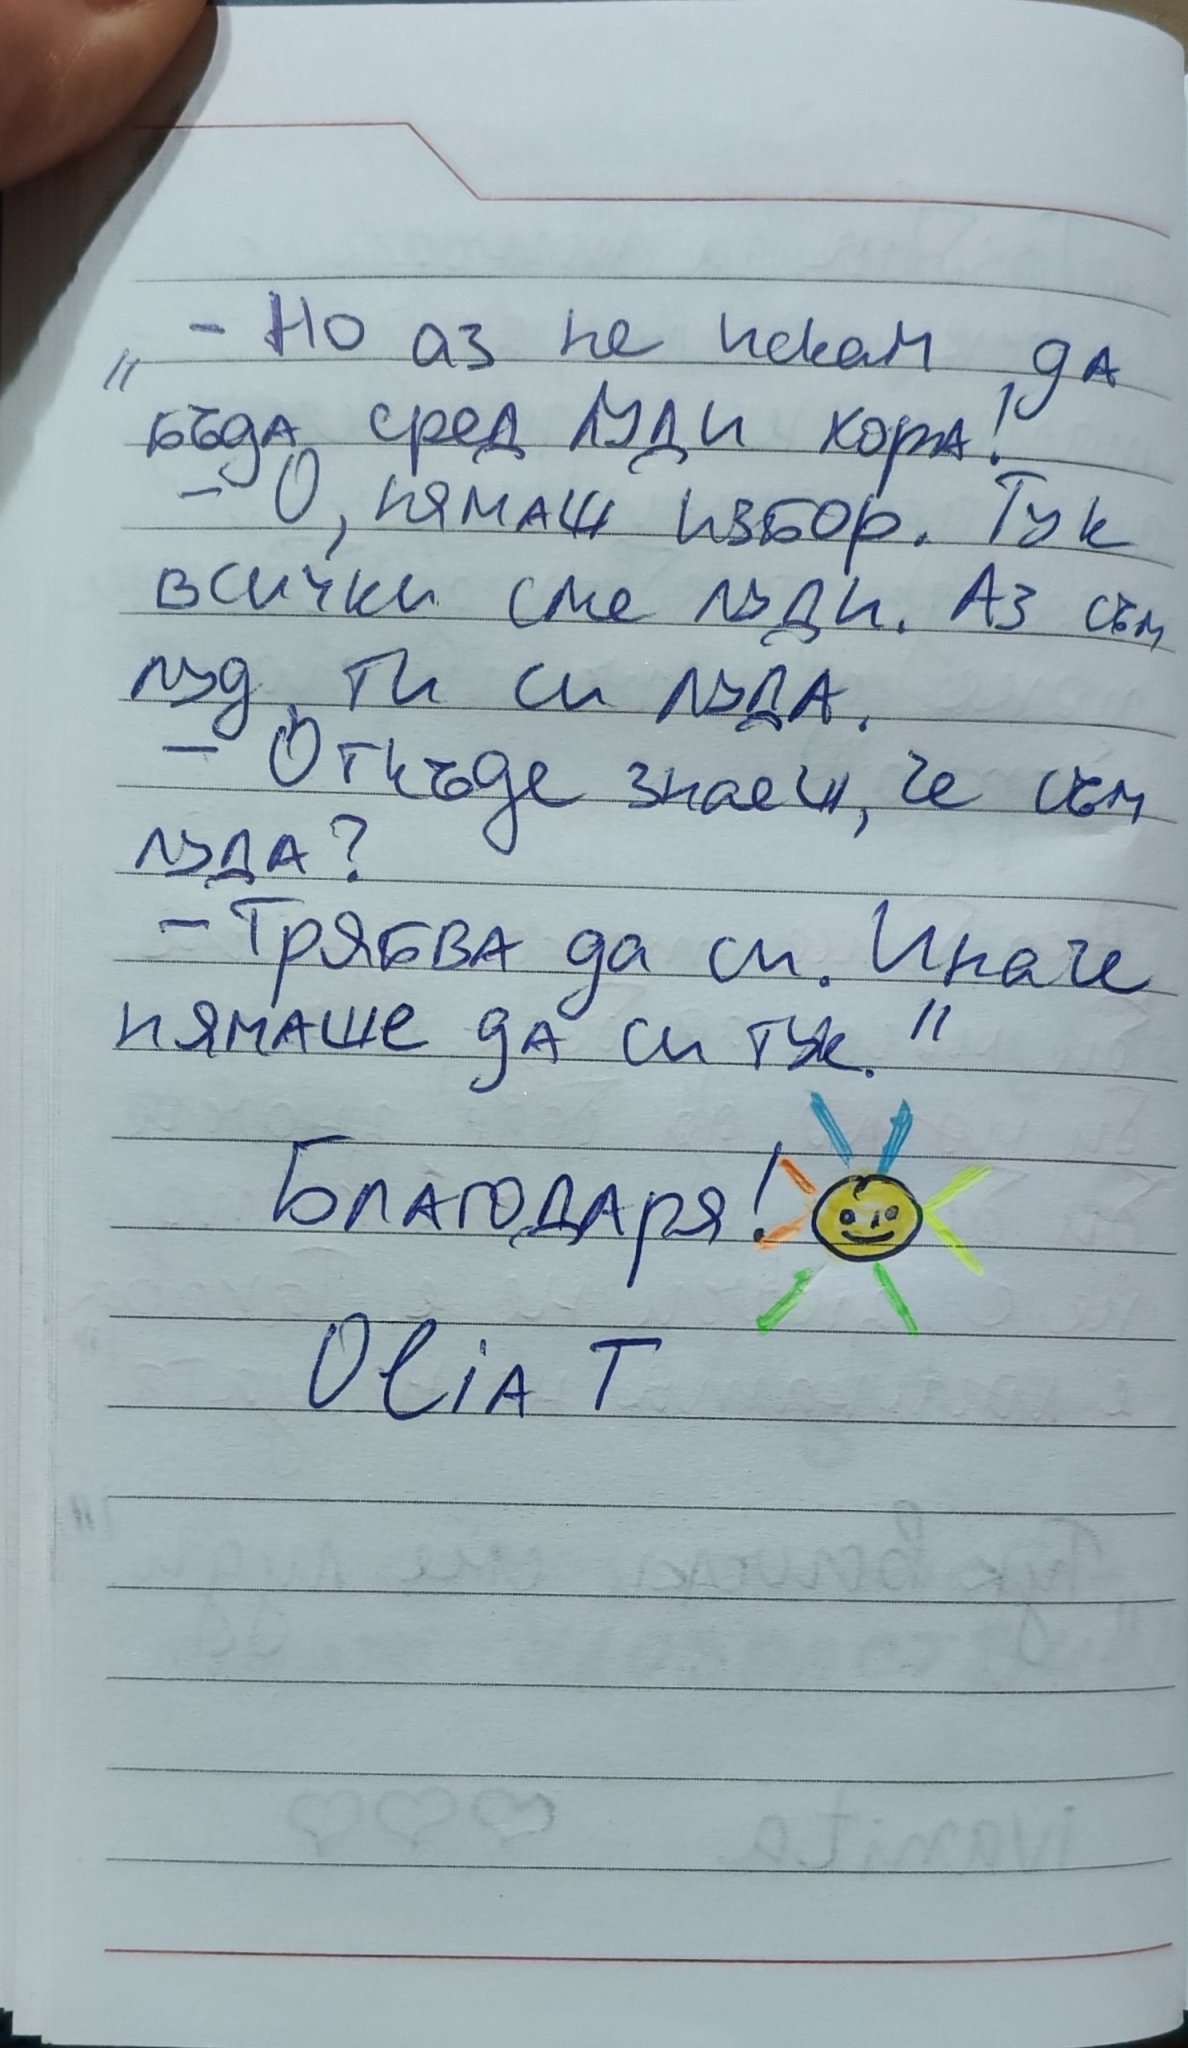 „ - Но аз не искам да
бъда сред луди хора!
- О, нямаш избор. Тук
всички сме луди. Аз съм
луд, ти си луда.
- Откъде знаеш, че съм
луда?
- Трябва да си. Иначе
нямаше да си тук."
Благодаря!
Olia T